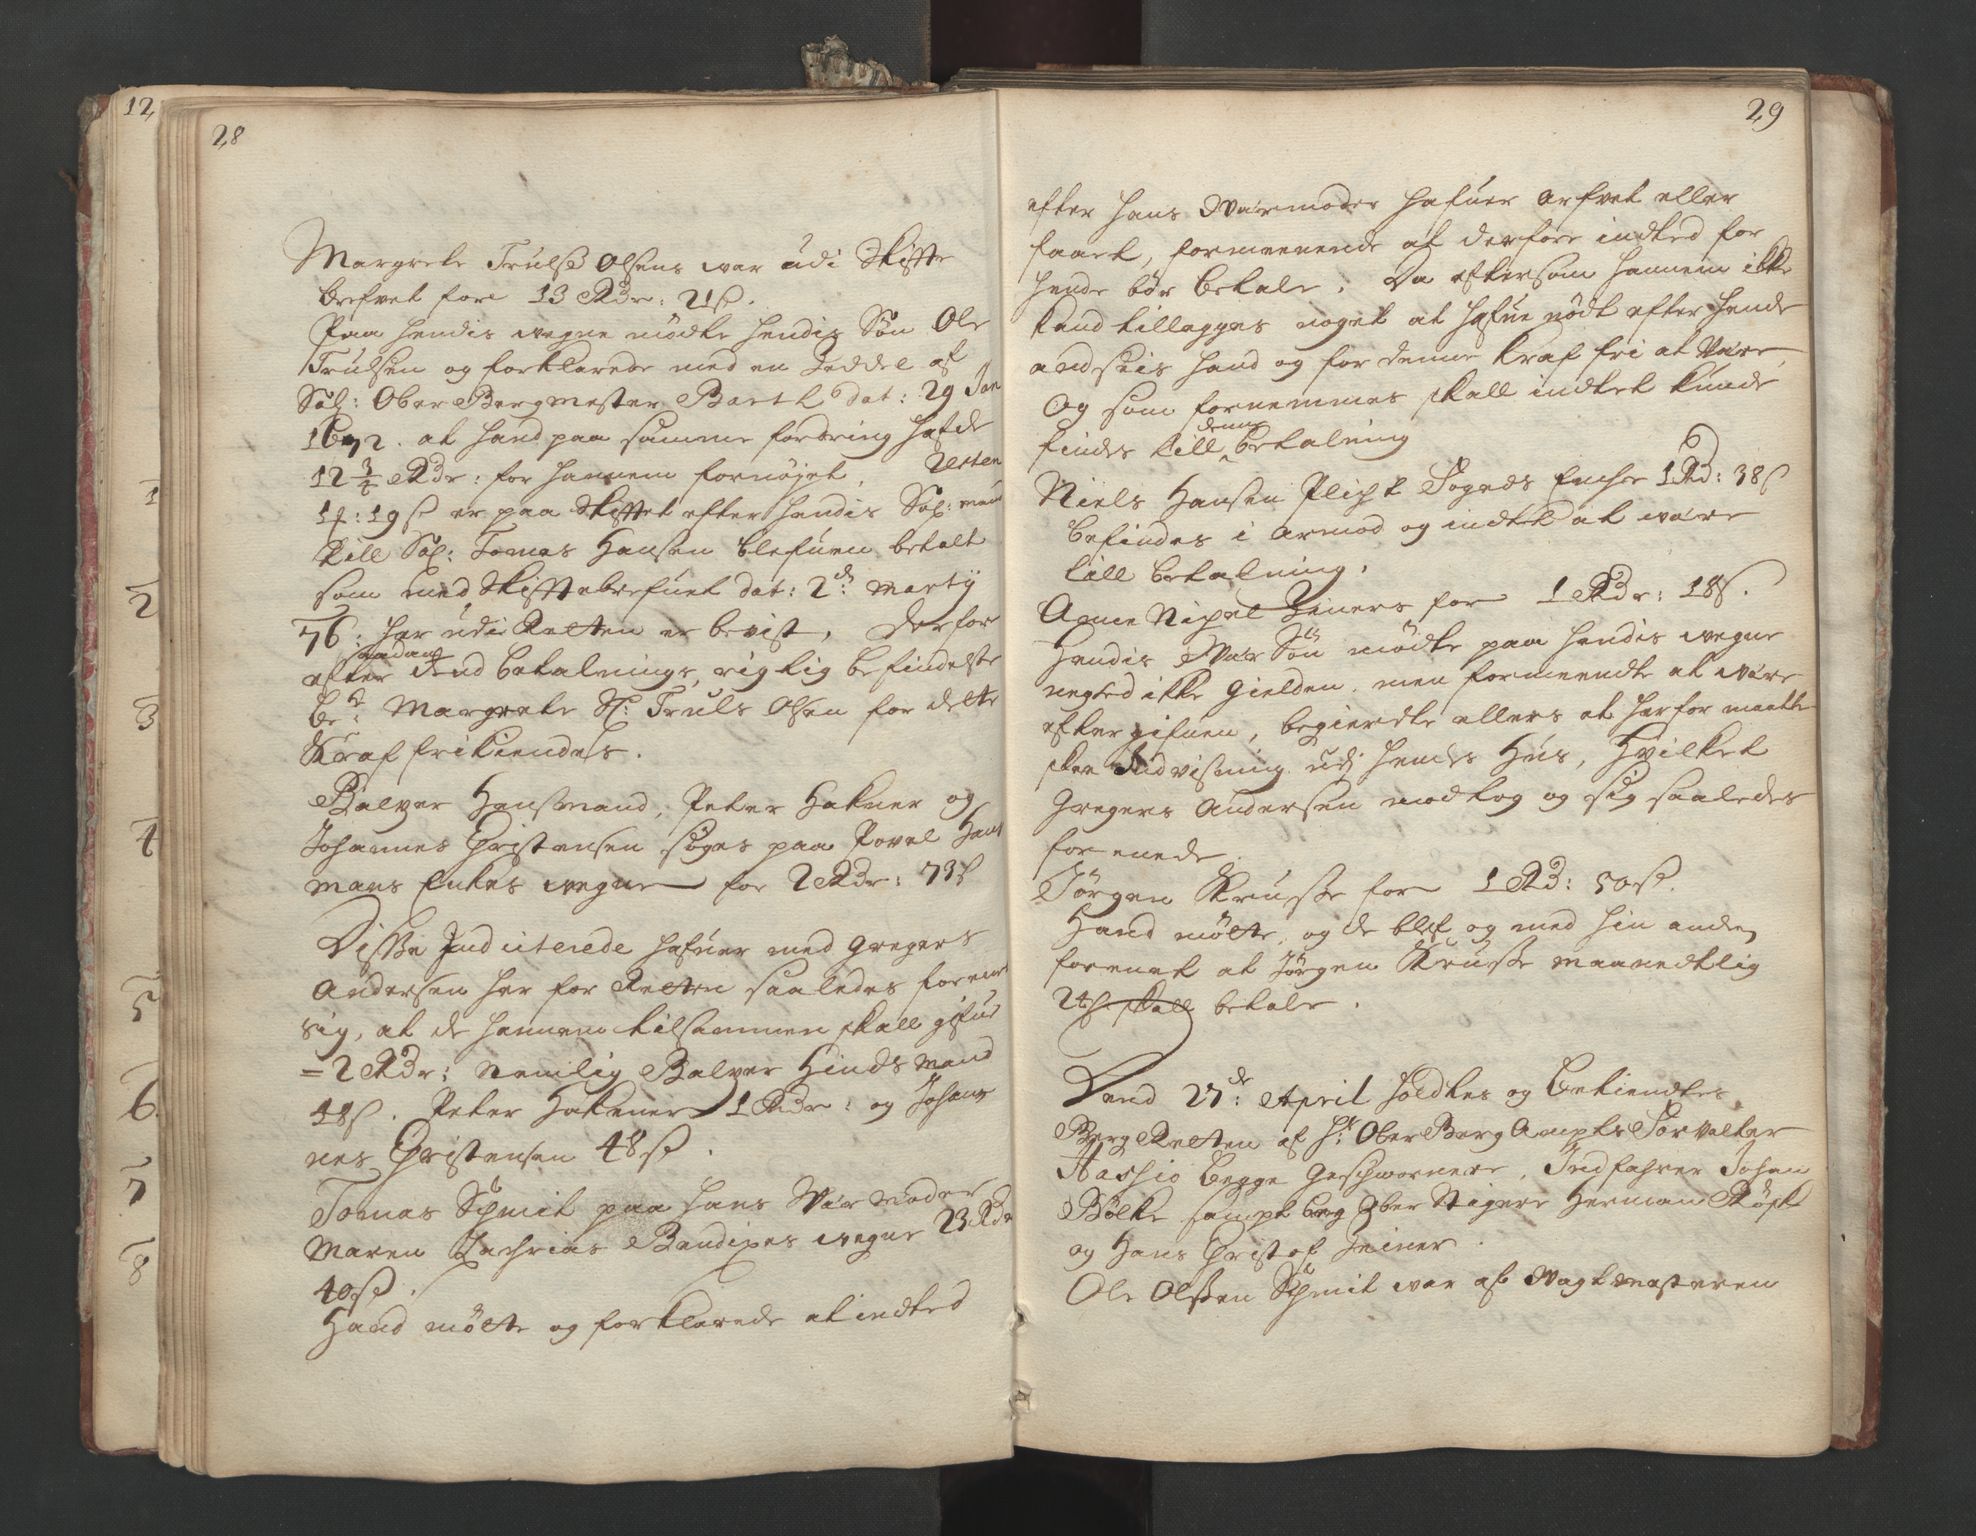 12,
28
Margrete Truls Olsens war udi Skifte
brefvet fore 13 Rdr: 21 s.
Paa hendis wegne mødte hendis Søn Ole
Trulsen og forklarede med en Zeddel af
Sal: Ober Bergmester Barth dat: 29 Jan
1672. at hand paa samme fordring hafde
12 Rdr: for hannem fornøjet, Resten
19 s er paa Skiftet efter hendis Sal: mand
till Sal: Tomas Hansen blefuen betalt
som med Skiftebrefuet dat: 2d: Marty
76: her udi Retten er bevist, derfor
efter saadan dend betalnings rigtig befindelse
be:d: Margrete Sl: Truls Olsen for dette
Kraf frikiendes.
Balzer Handsmand, Peter Hakner og
Johannes Christensen søges paa Povel Hand
mans Enkes wegne for 2 Rdr: 73 s
Disse Inditerede hafuer med Gregers
Andersen her for Retten saaledes forenet
sig, at de hannem tilsammen skall gifue
= 2 Rdr: Nemlig Balzer Hindsmand
48 s. Peter Hakener 1 Rdr: og Johan
nes Christensen 48 s.
Tomas Schmit paa hans Wærmoder
Maren Zachrias Bandixes wegne 23 Rdr
40 s.
Hand mødte og forklarede at indted
29
efter hans Wærmoder hafuer arfvet eller
faaet, formeenende at derfore indted for
hende bør betale. Da eftersom hannem ikke
kand tillegges noget at hafue nødt efter hende
andseis hand og for denne Kraf fri at Være,
Og som fornemmes skall indtet kunde
findes till denne betalning
Niels Hansen Plicht Fogeds Enche 1 Rd: 38 s
befindes i armod og indtet at være
till betalning.
Anne Nipel Zeiners for 1 Rdr: 18 s.
Hendis Wær Søn mødte paa hendis wegne
negted ikke Gielden, men formeendte at være
eftergifuen, begierdte ellers at herfor maatte
skee Indvisning udj hendes Huus, Hvilket
Gregers Andersen modtog og sig saaledes
foreenede.
Jørgen Kruse for 1 Rd: 50 s.
Hand mødte, og de blef og med hin anden
forenet at Jørgen Kruse maanedtlig
24 s skall betale.
Dend 27de: April holdtes og bekiendtes
Berg Retten af Hr: Ober Berg Ampts Forvalter
Hassio begge Geschwornere, Indfahrer Johan
Bølke sampt beg Ober Stigere Herman Røst
og Hans Christof Zeiner.
Ole Olsen Schmit war af Wagtmesteren
1
2
3
4
5
6
7
8